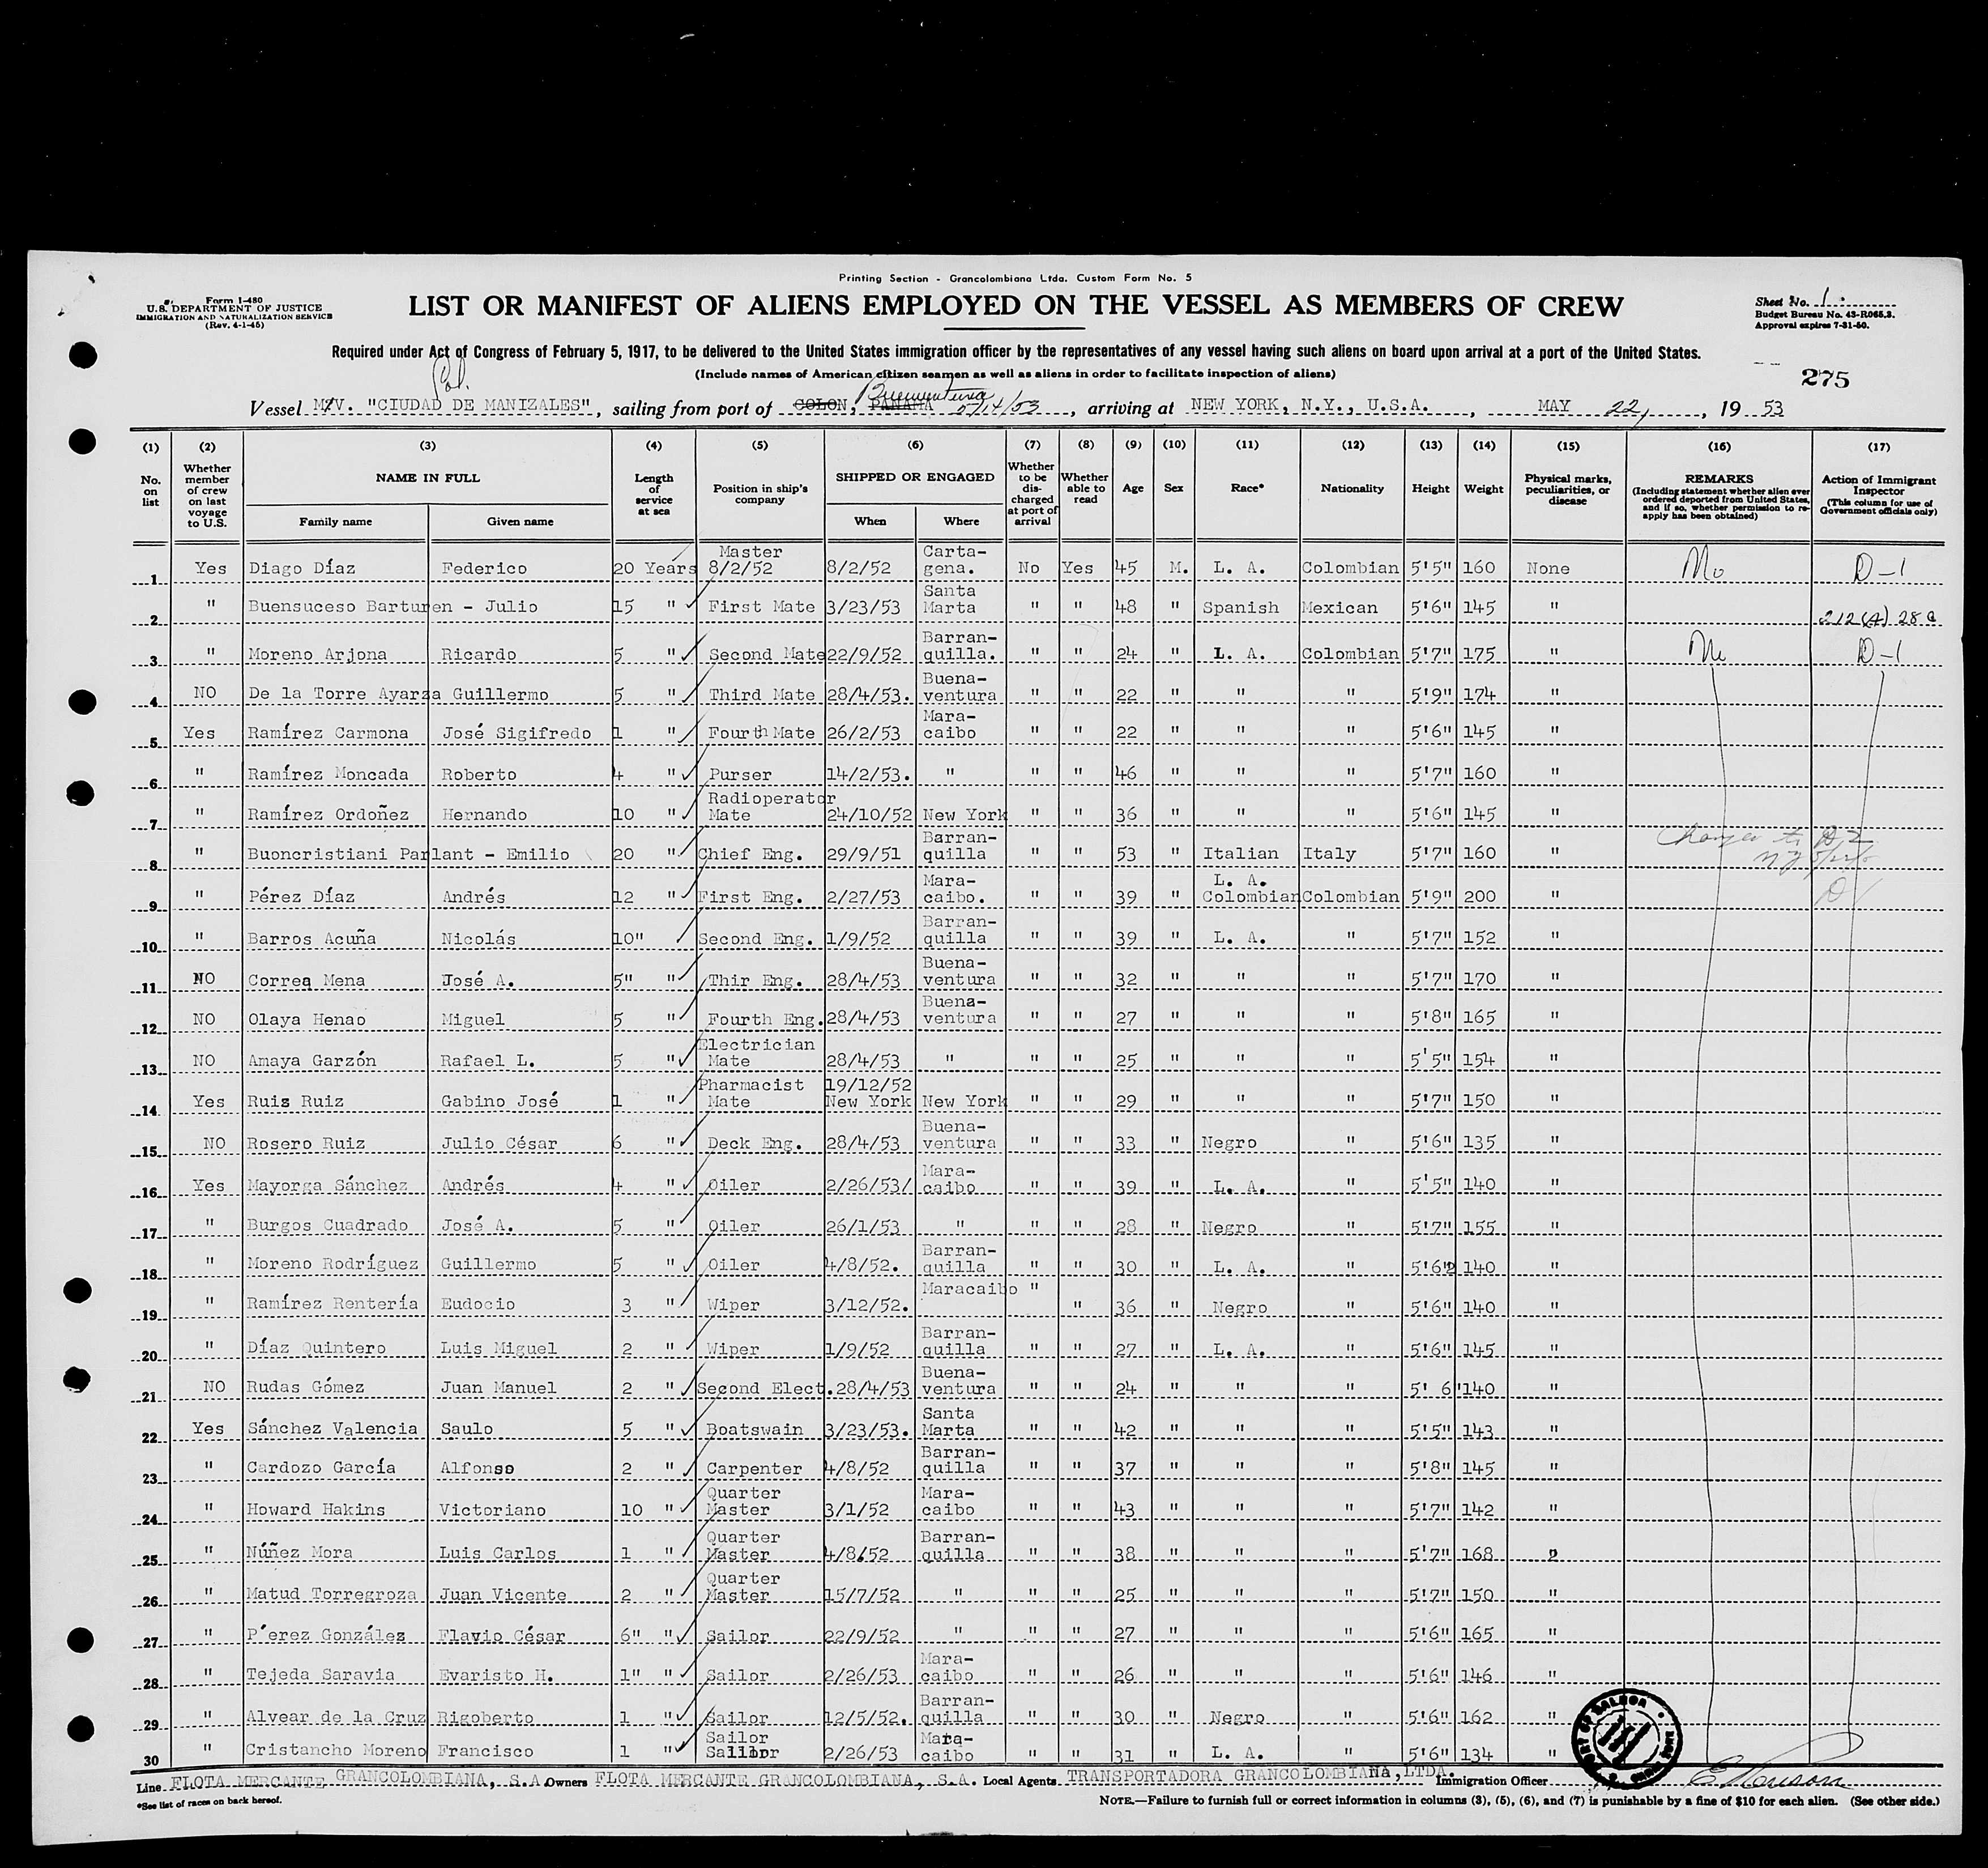 Printing Section - Grancolombiana Ltda. Custom Form No. 5
Form I-480
U.S. DEPARTMENT OF JUSTICE
IMMIGRATION AND NATURALIZATION SERVICE
(Rev. 4-1-45)
LIST OR MANIFEST OF ALIENS EMPLOYED ON THE VESSEL AS MEMBERS OF CREW
Sheet No. 1
Budget Bureau No. 43-R065.3.
Approval expires 7-31-50.
Required under Act of Congress of February 5, 1917, to be delivered to the United States immigration officer by the representatives of any vessel having such aliens on board upon arrival at a port of the United States.
(Include names of American citizen seamen as well as aliens in order to facilitate inspection of aliens)
275
Col.
Buenventura
Vessel M/V. "CIUDAD DE MANIZALES", sailing from port of COLON, PANAMA 5/14/53, arriving at NEW YORK, N.Y., U.S.A., MAY 22, 1953
(1) (2) (3) (4) (5) (6) (7) (8) (9) (10) (11) (12) (13) (14) (15) (16) (17)
No. on list
Whether member of crew on last voyage to U.S.
NAME IN FULL
Family name Given name
Length of service at sea
Position in ship's company
SHIPPED OR ENGAGED
When Where
Whether to be discharged at port of arrival
Whether able to read
Age Sex Race* Nationality Height Weight
Physical marks, peculiarities, or disease
REMARKS
(Including statement whether alien ever ordered deported from United States, and if so, whether permission to reapply has been obtained)
Action of Immigrant Inspector
(This column for use of Government officials only)
1 Yes Diago Díaz Federico 20 Years Master 8/2/52 8/2/52 Cartagena. No Yes 45 M. L. A. Colombian 5'5" 160 None D-1
2 " Buensuceso Barturen - Julio 15 " First Mate 3/23/53 Santa Marta " " 48 " Spanish Mexican 5'6" 145 " 212(A) 28
3 " Moreno Arjona Ricardo 5 " Second Mate 22/9/52 Barranquilla. " " 24 " L. A. Colombian 5'7" 175 " D-1
4 NO De la Torre Ayarza Guillermo 5 " Third Mate 28/4/53. Buenaventura " " 22 " " " 5'9" 174 "
5 Yes Ramírez Carmona José Sigifredo 1 " Fourth Mate 26/2/53 Maracaibo " " 22 " " " 5'6" 145 "
6 " Ramírez Moncada Roberto 4 " Purser 14/2/53. " " " 46 " " " 5'7" 160 "
7 " Ramírez Ordoñez Hernando 10 " Radioperator Mate 24/10/52 New York " " 36 " " " 5'6" 145 "
8 " Buoncristiani Parlant - Emilio 20 " Chief Eng. 29/9/51 Barranquilla " " 53 " Italian Italy 5'7" 160 "
9 " Pérez Díaz Andrés 12 " First Eng. 2/27/53 Maracaibo. " " 39 " L. A. Colombian Colombian 5'9" 200 "
10 " Barros Acuña Nicolás 10" Second Eng. 1/9/52 Barranquilla " " 39 " L. A. " 5'7" 152 "
11 NO Correa Mena José A. 5" " Thir Eng. 28/4/53 Buenaventura " " 32 " " " 5'7" 170 "
12 NO Olaya Henao Miguel 5 " Fourth Eng. 28/4/53 Buenaventura " " 27 " " " 5'8" 165 "
13 NO Amaya Garzón Rafael L. 5 " Electrician Mate 28/4/53 " " " 25 " " " 5'5" 154 "
14 Yes Ruiz Ruiz Gabino José 1 " Pharmacist Mate 19/12/52 New York New York " " 29 " " " 5'7" 150 "
15 NO Rosero Ruiz Julio César 6 " Deck Eng. 28/4/53 Buenaventura " " 33 " Negro " 5'6" 135 "
16 Yes Mayorga Sánchez Andrés 4 " Oiler 2/26/53/ Maracaibo " " 39 " L. A. " 5'5" 140 "
17 " Burgos Cuadrado José A. 5 " Oiler 26/1/53 " " " 28 " Negro " 5'7" 155 "
18 " Moreno Rodríguez Guillermo 5 " Oiler 4/8/52. Barranquilla " " 30 " L. A. " 5'6" 140 "
19 " Ramírez Rentería Eudocio 3 " Wiper 3/12/52. Maracaibo " " 36 " Negro " 5'6" 140 "
20 " Díaz Quintero Luis Miguel 2 " Wiper 1/9/52 Barranquilla " " 27 " L. A. " 5'6" 145 "
21 NO Rudas Gómez Juan Manuel 2 " Second Elect. 28/4/53 Buenaventura " " 24 " " " 5' 6" 140 "
22 Yes Sánchez Valencia Saulo 5 " Boatswain 3/23/53. Santa Marta " " 42 " " " 5'5" 143 "
23 " Cardozo García Alfonso 2 " Carpenter 4/8/52 Barranquilla " " 37 " " " 5'8" 145 "
24 " Howard Hakins Victoriano 10 " Quarter Master 3/1/52 Maracaibo " " 43 " " " 5'7" 142 "
25 " Núñez Mora Luis Carlos 1 " Quarter Master 4/8/52 Barranquilla " " 38 " " " 5'7" 168 "
26 " Matud Torregroza Juan Vicente 2 " Quarter Master 15/7/52 " " " 25 " " " 5'7" 150 "
27 " P´erez González Flavio César 6" " Sailor 22/9/52 " " " 27 " " " 5'6" 165 "
28 " Tejeda Saravia Evaristo H. 1" " Sailor 2/26/53 Maracaibo " " 26 " " " 5'6" 146 "
29 " Alvear de la Cruz Rigoberto 1 " Sailor 12/5/52. Barranquilla " " 30 " Negro " 5'6" 162 "
30 " Cristancho Moreno Francisco 1 " Sailor Sailor 2/26/53 Maracaibo " " 31 " L. A. " 5'6" 134 "
Line FLOTA MERCANTE GRANCOLOMBIANA, S.A. Owners FLOTA MERCANTE GRANCOLOMBIANA, S.A. Local Agents TRANSPORTADORA GRANCOLOMBIANA, LTDA. Immigration Officer
*See list of races on back hereof.
NOTE.—Failure to furnish full or correct information in columns (3), (5), (6), and (7) is punishable by a fine of $10 for each alien. (See other side.)